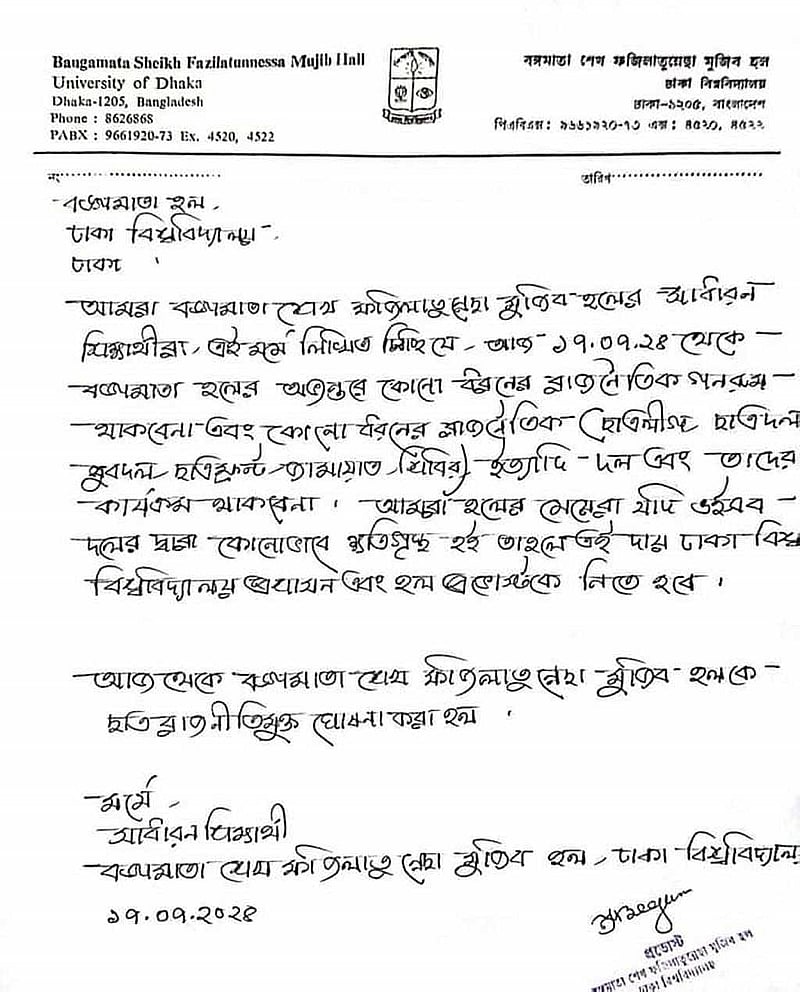 Bangamata Sheikh Fazilatunnessa Mujib Hall
University of Dhaka
Dhaka-1205, Bangladesh
Phone : 8626868
PABX : 9661920-73 Ex. 4520, 4522
বঙ্গমাতা শেখ ফজিলাতুন্নেছা মুজিব হল
ঢাকা বিশ্ববিদ্যালয়
ঢাকা-১২০৫, বাংলাদেশ
পিএবিএক্স : ৯৬৬১৯২০-৭৩ এক্স : ৪৫২০, ৪৫২২
নং..............................
তারিখ..............................
বঙ্গমাতা হল,
ঢাকা বিশ্ববিদ্যালয়,
ঢাকা ।
আমরা বঙ্গমাতা শেখ ফজিলাতুন্নেছা মুজিব হলের সাধারন
শিক্ষার্থীরা, এই মর্মে লিখিত দিচ্ছি যে, আজ ১৭.০৭.২৪ থেকে
বঙ্গমাতা হলের অভ্যন্তরে কোনো ধরনের রাজনৈতিক গনরুম
থাকবেনা এবং কোনো ধরনের রাজনৈতিক (ছাত্রলীগ, ছাত্রদল
যুবদল, ছাত্রফ্রন্ট, জামায়াত, শিবির) ইত্যাদি দল এবং তাদের
কার্যক্রম থাকবেনা । আমরা হলের মেয়েরা যদি ওইসব
দলের দ্বারা কোনোভাবে ক্ষতিগ্রস্থ হই তাহলে এই দায় ঢাকা বিশ্ব
বিশ্ববিদ্যালয় প্রশাসন এবং হল প্রভোস্টকে নিতে হবে ।
আজ থেকে বঙ্গমাতা শেখ ফজিলাতুন্নেছা মুজিব হলকে
ছাত্র রাজনীতিমুক্ত ঘোষনা করা হল ।
মর্মে,
সাধারন শিক্ষার্থী
বঙ্গমাতা শেখ ফজিলাতুন্নেছা মুজিব হল, ঢাকা বিশ্ববিদ্যালয়
১৭.০৭.২০২৪
প্রভোস্ট
বঙ্গমাতা শেখ ফজিলাতুন্নেছা মুজিব হল
ঢাকা বিশ্ববিদ্যালয়